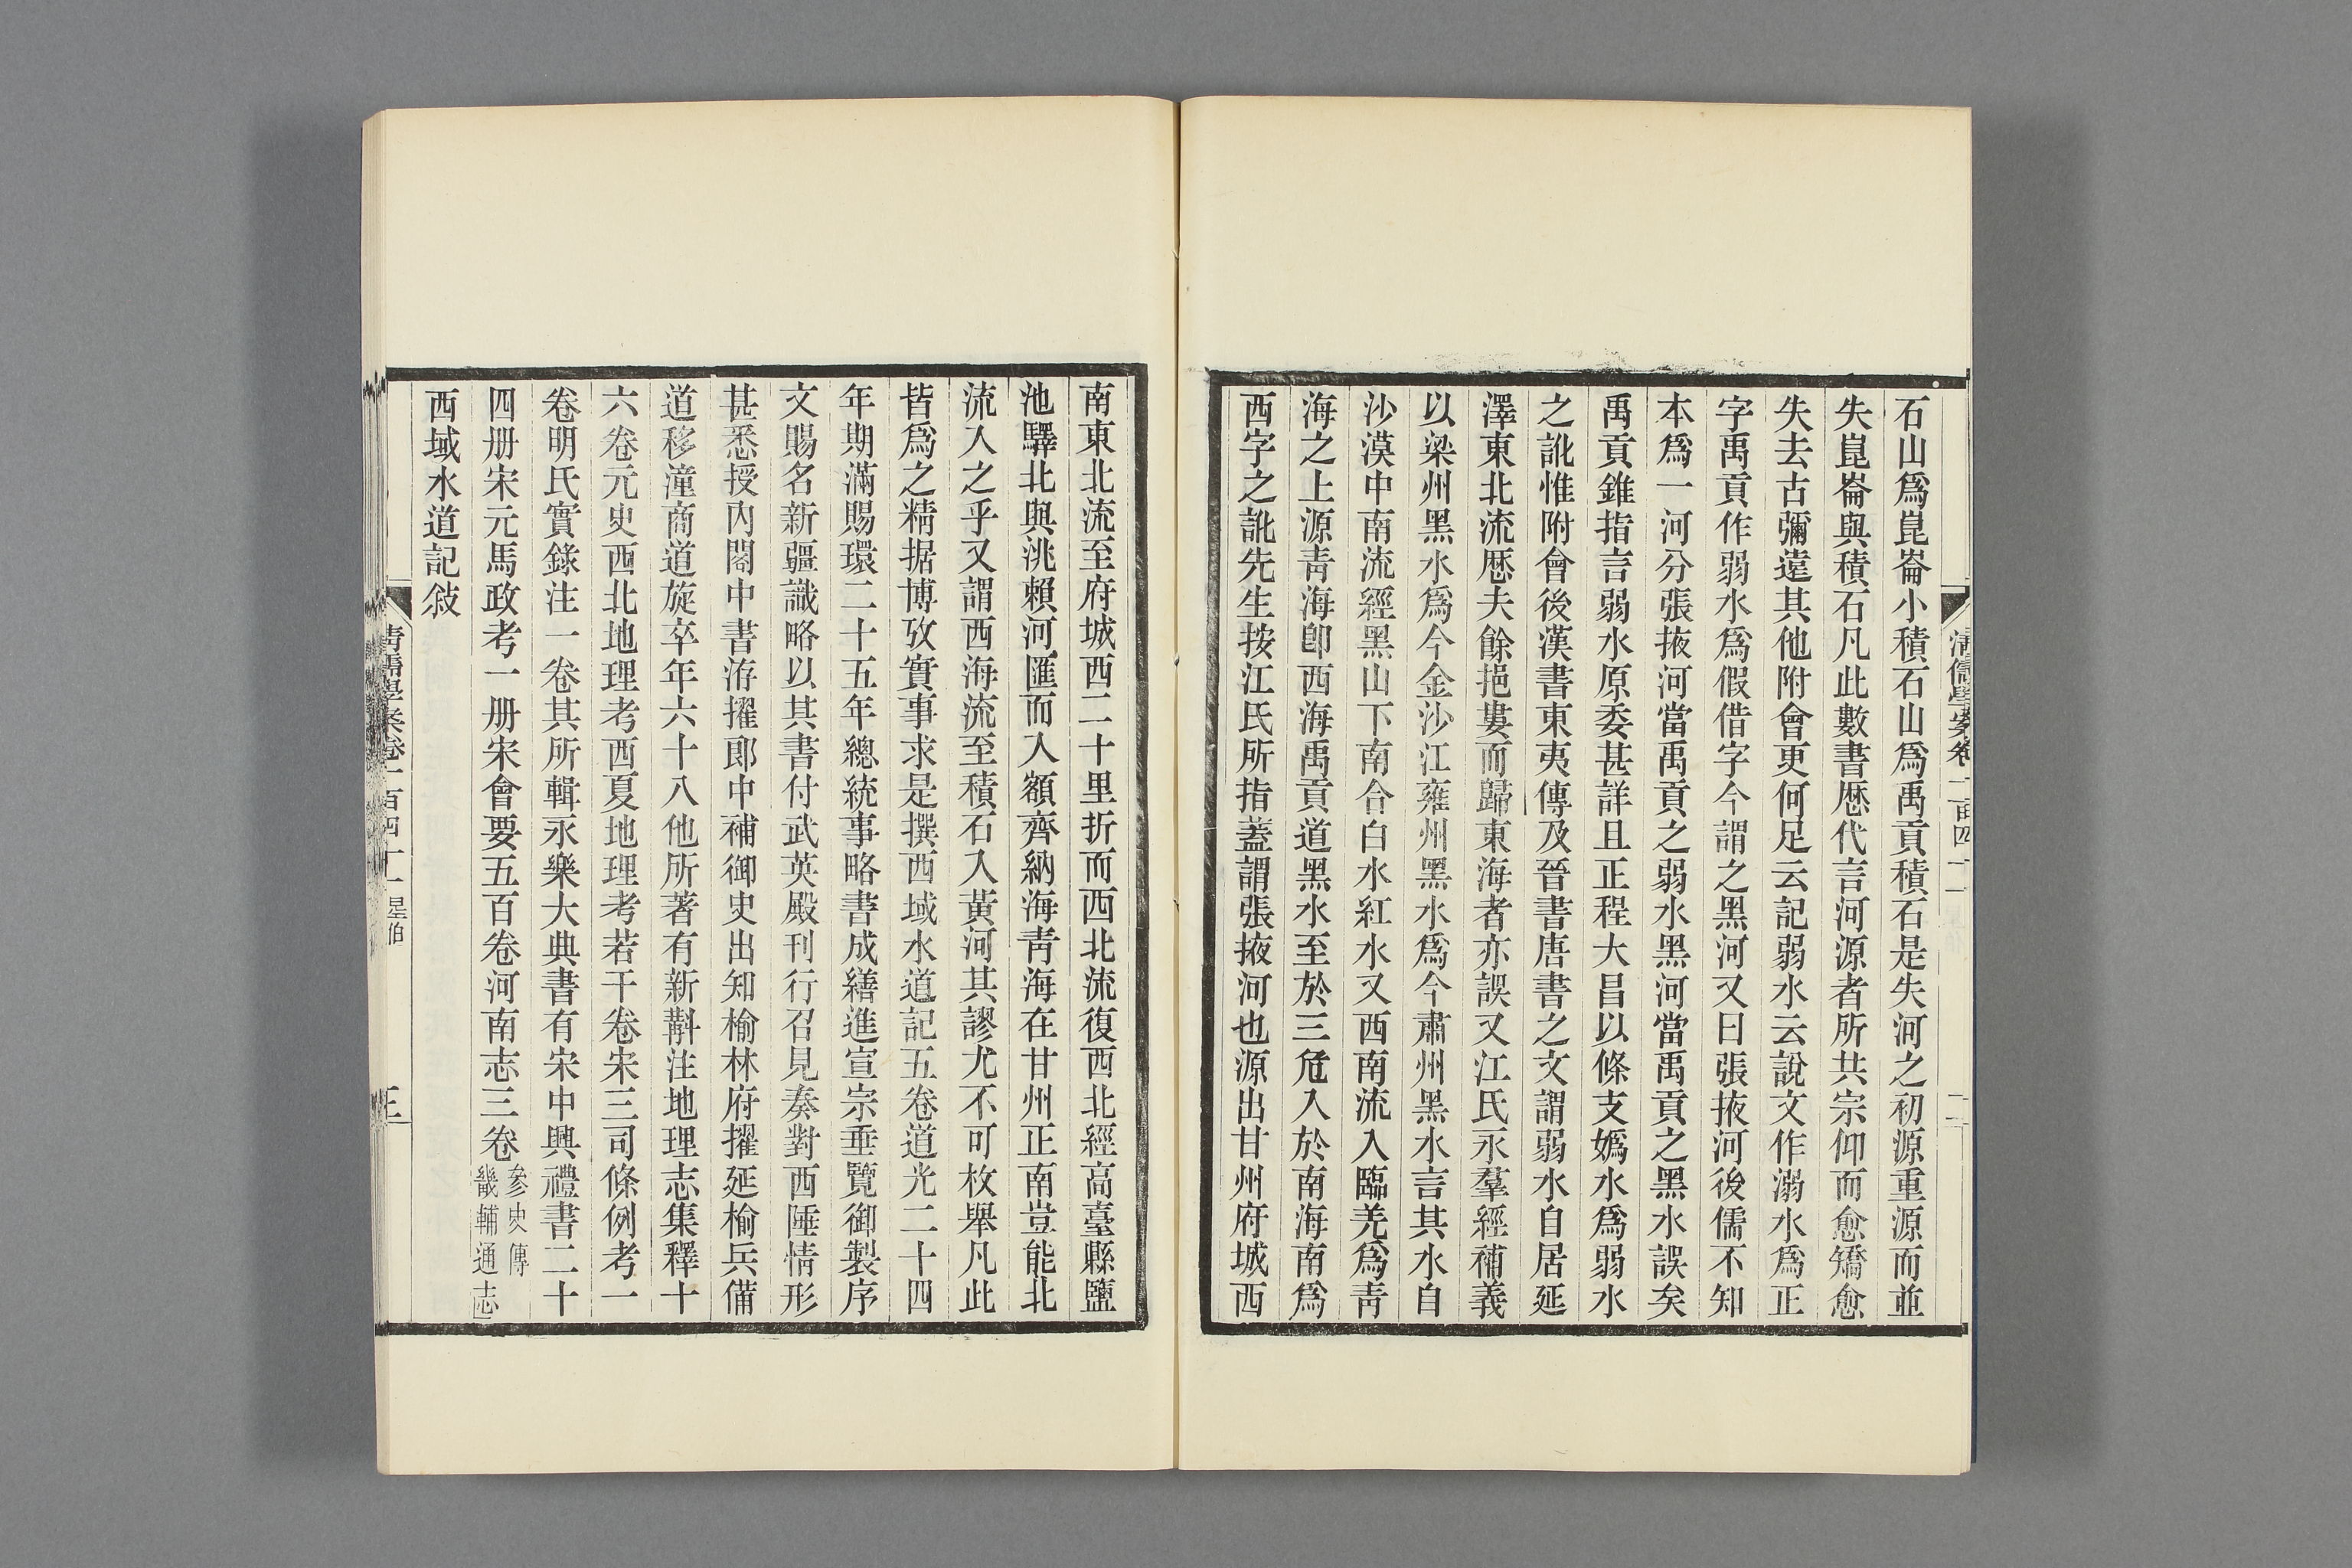 石山爲崑崙小積石山爲禹貢積石是失河之初源重源而並
失崑崙與積石凡此數書歴代言河源者所共宗仰而愈矯愈
失去古彌遠其他附會更何足云記弱水云說文作溺水爲正
字禹貢作弱水爲假借字今謂之黑河又曰張掖河後儒不知
本爲一河分張掖河當禹貢之弱水黑河當禹貢之黑水誤矣
禹貢錐指言弱水原委甚詳且正程大昌以條支嬀水爲弱水
之訛惟附會後漢書東夷傳及晉書唐書之文謂弱水自居延
澤東北流歴夫餘挹婁而歸東海者亦誤又江氏永羣經補義
以梁州黑水爲今金沙江雍州黑水爲今肅州黑水言其水自
沙漠中南流經黑山下南合白水紅水又西南流入臨羌爲靑
海之上源靑海卽西海禹貢道黑水至於三危入於南海南爲
西字之訛先生按江氏所指蓋謂張掖河也源出甘州府城西
清儒學案卷一百四十一
二
南東北流至府城西二十里折而西北流復西北經高臺縣鹽
池驛北與洮賴河匯而入額齊納海靑海在甘州正南豈能北
流入之乎又謂西海流至積石入黃河其謬尤不可枚舉凡此
皆爲之精据博攷實事求是撰西域水道記五卷道光二十四
年期滿賜環二十五年總統事略書成繕進宣宗垂覽御製序
文賜名新疆識略以其書付武英殿刊行召見奏對西陲情形
甚悉授內閣中書洊擢郎中補御史出知榆林府擢延榆兵備
道移潼商道旋卒年六十八他所著有新斠注地理志集釋十
六卷元史西北地理考西夏地理考若干卷宋三司條例考一
卷明氏實錄注一卷其所輯永樂大典書有宋中興禮書二十
四册宋元馬政考一册宋會要五百卷河南志三卷參史傳
畿輔通志
西域水道記敘
清儒學案卷一百四十一 星伯
三